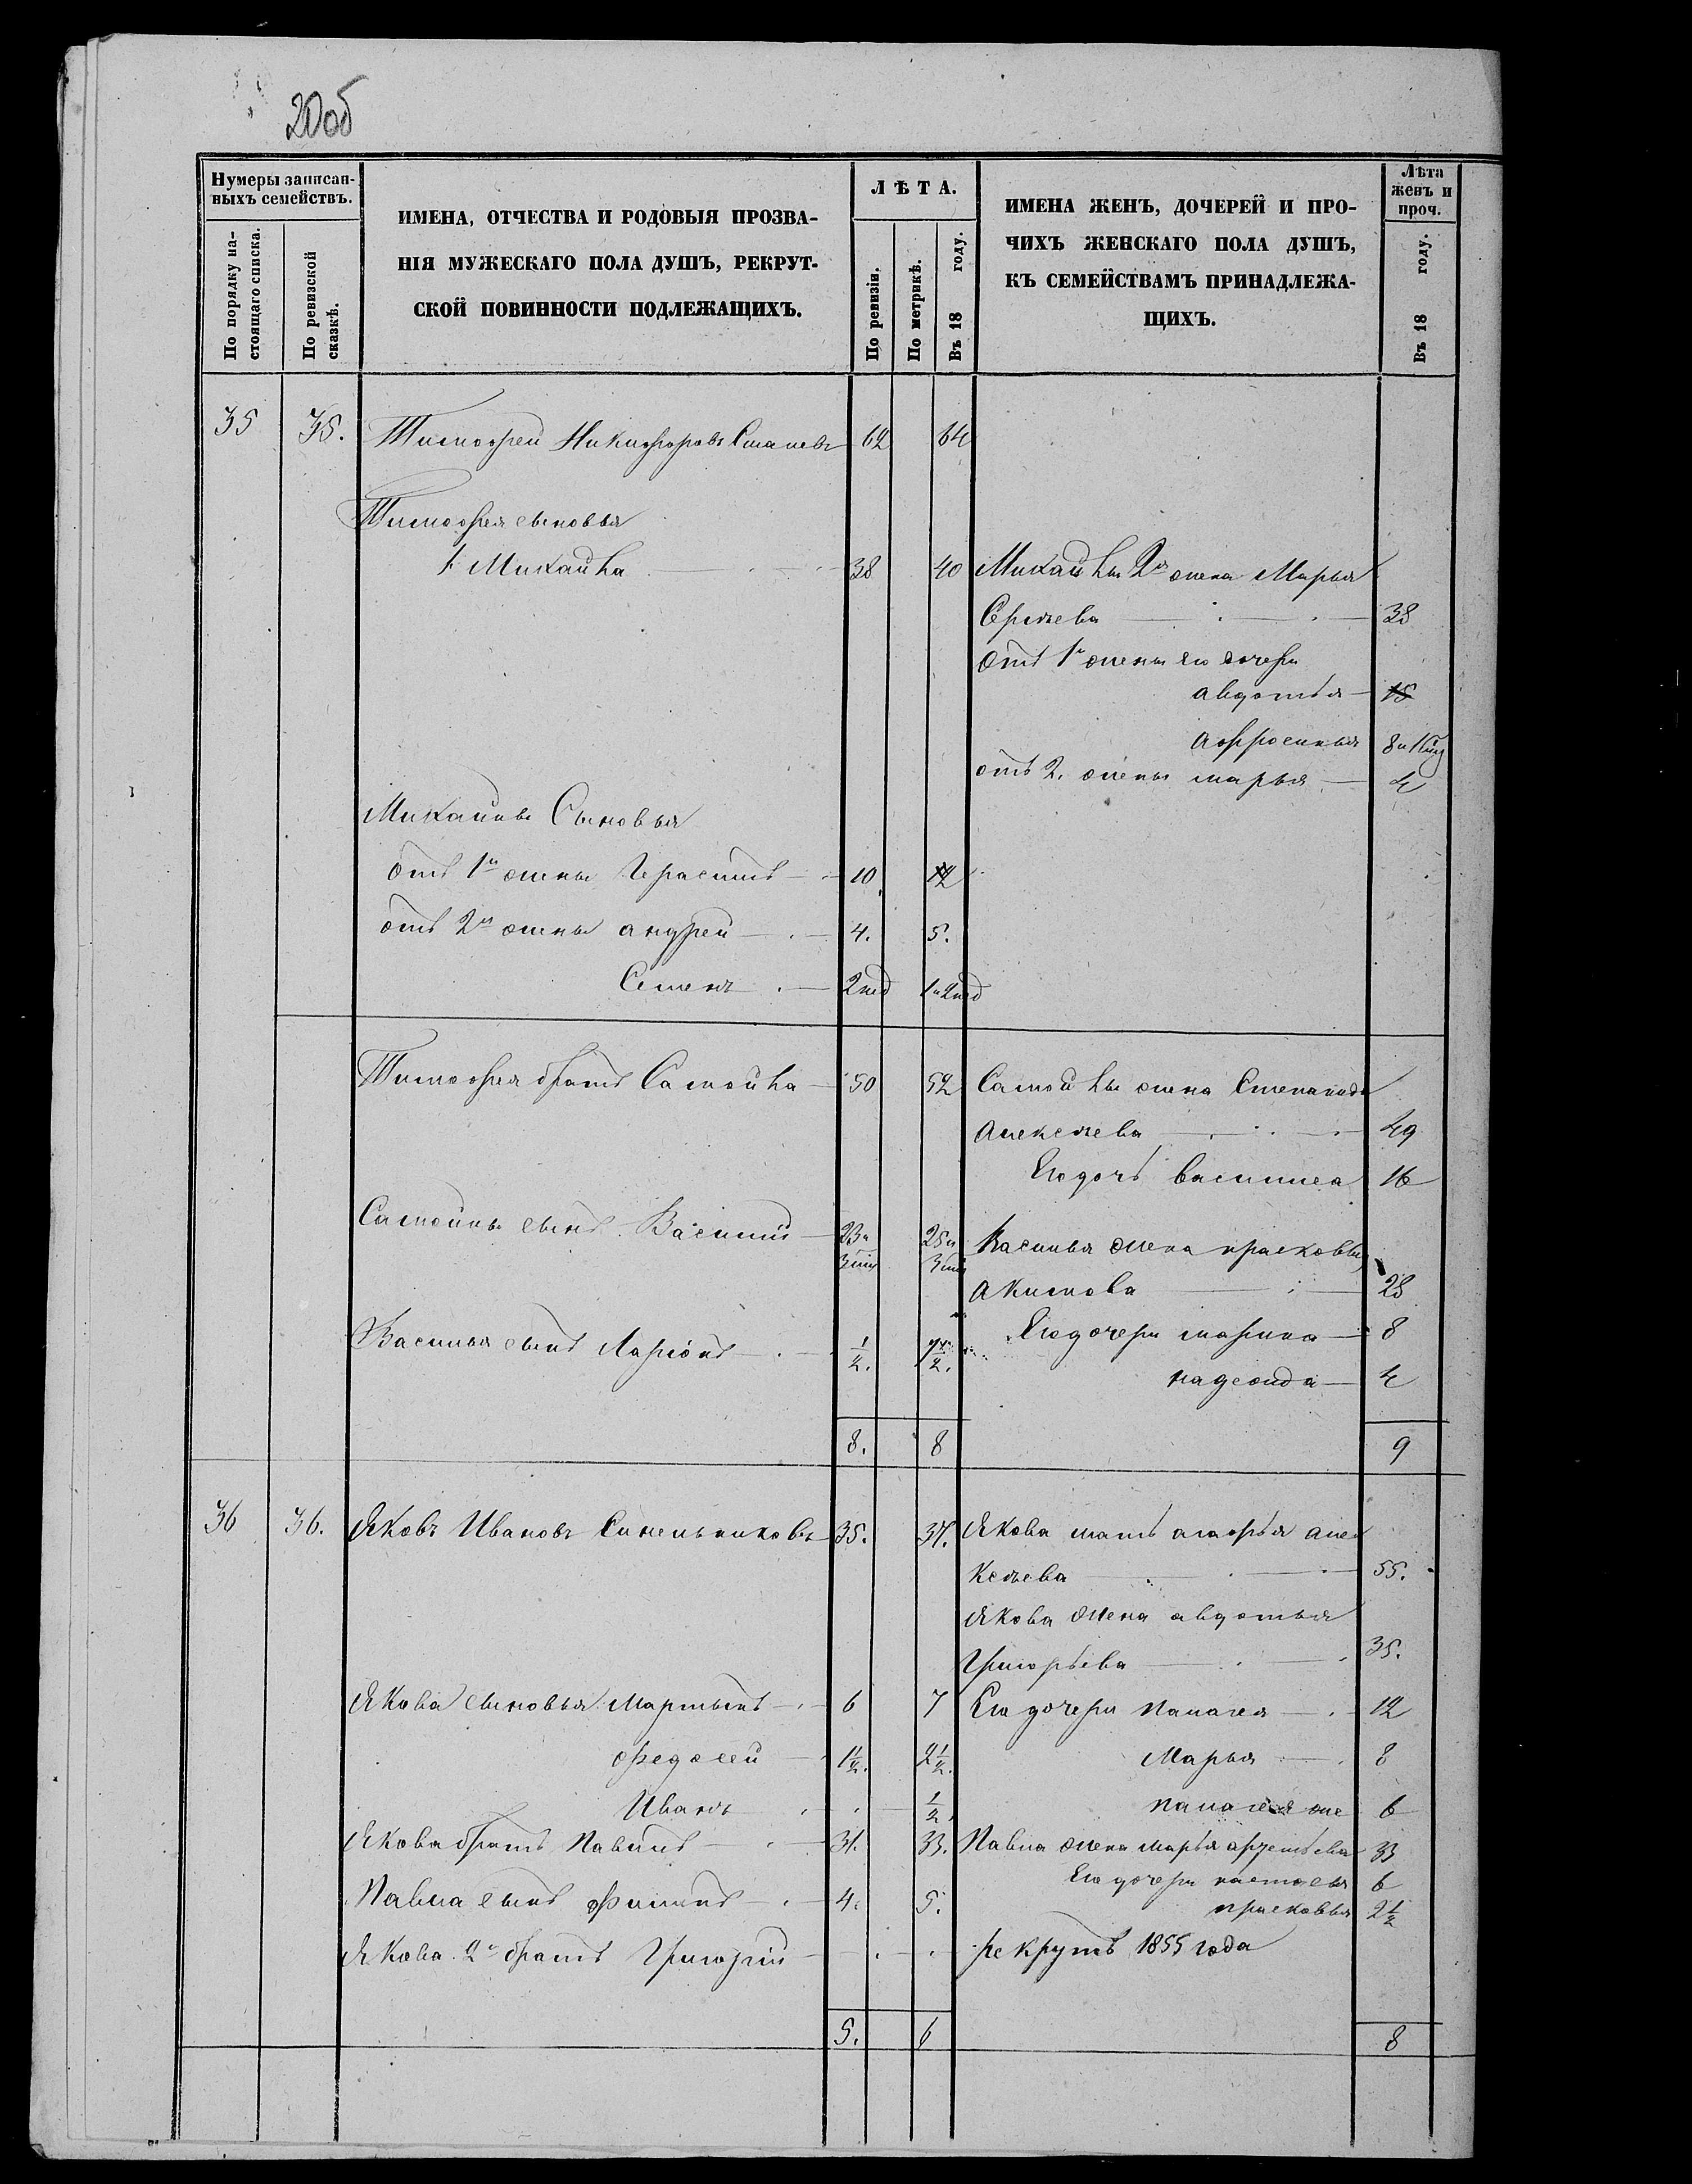 20об
Нумеры записан-
ныхъ семействъ.
По порядку на-
стоящаго списка.
По ревизской
сказкѣ.
ИМЕНА, ОТЧЕСТВА И РОДОВЫЯ ПРОЗВА-
НІЯ МУЖЕСКАГО ПОЛА ДУШЪ, РЕКРУТ-
СКОЙ ПОВИННОСТИ ПОДЛЕЖАЩИХЪ.
ЛѢТА.
По ревизіи.
По метрикѣ.
Въ 18 году.
ИМЕНА ЖЕНЪ, ДОЧЕРЕЙ И ПРО-
ЧИХЪ ЖЕНСКАГО ПОЛА ДУШЪ,
КЪ СЕМЕЙСТВАМЪ ПРИНАДЛЕЖА-
ЩИХЪ.
Лѣта
женъ и
проч.
Въ 18 году.
35 35. Тимофей Никифоровъ 62 64
Тимофея сыновья
1. Михайла 38 40 Михайлы 2я жена Марья
Сергѣева 38
Отъ 1й жены его дочери
Авдотья 15
Афросинья
отъ 2. жены Марья 4
Михайлы Сыновья
Отъ 1й жены Герасимъ 10 12
Отъ 2й жены Андрей 4. 5.
Семенъ 2нед 1и2нед
Тимофея братъ Самойла 50 52 Самойлы жена Степанида
Алексѣева 49
Его дочь Василиса 16
Самойлы сынъ Василій 23и 25и
Василья жена Прасковья
Акимова 28
Василья сынъ Ларіонъ 1/2.
Его дочери Марина 8
Надежда 4
8. 8 9
36 36. Яковъ Ивановъ Синельниковъ 35. 37. Якова мать Агафья Але
ксѣева 55.
Якова жена Авдотья
Григорьева 35.
Якова сыновья Мартынъ 6 7 Его дочери Палагея 12
Федосей 1 1/2. 2 1/2. Марья 8
Иванъ 1/2. Палагея же 6
Якова братъ Павилъ 31. 33. Павла жена Марья Артемьева 33
Его дочери Настасья 6
Павла сынъ Филипъ 4. 5. Прасковья 2 1/2
Якова 2й братъ Григорій рекрутъ 1855 года
5. 6 8